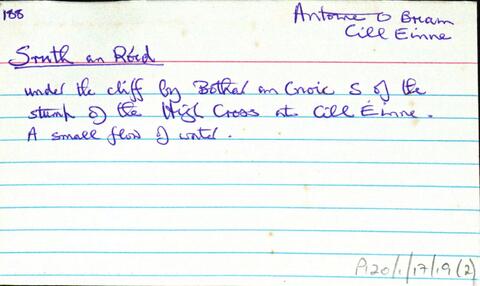 188
Antoine O Briain
Cill Einne
Sruth an Róid
under the cliff by Bothar an Cnoic S of the
stump of the High Cross at Cill Éinne.
A small flow of water.
P120/1/17/19(2)